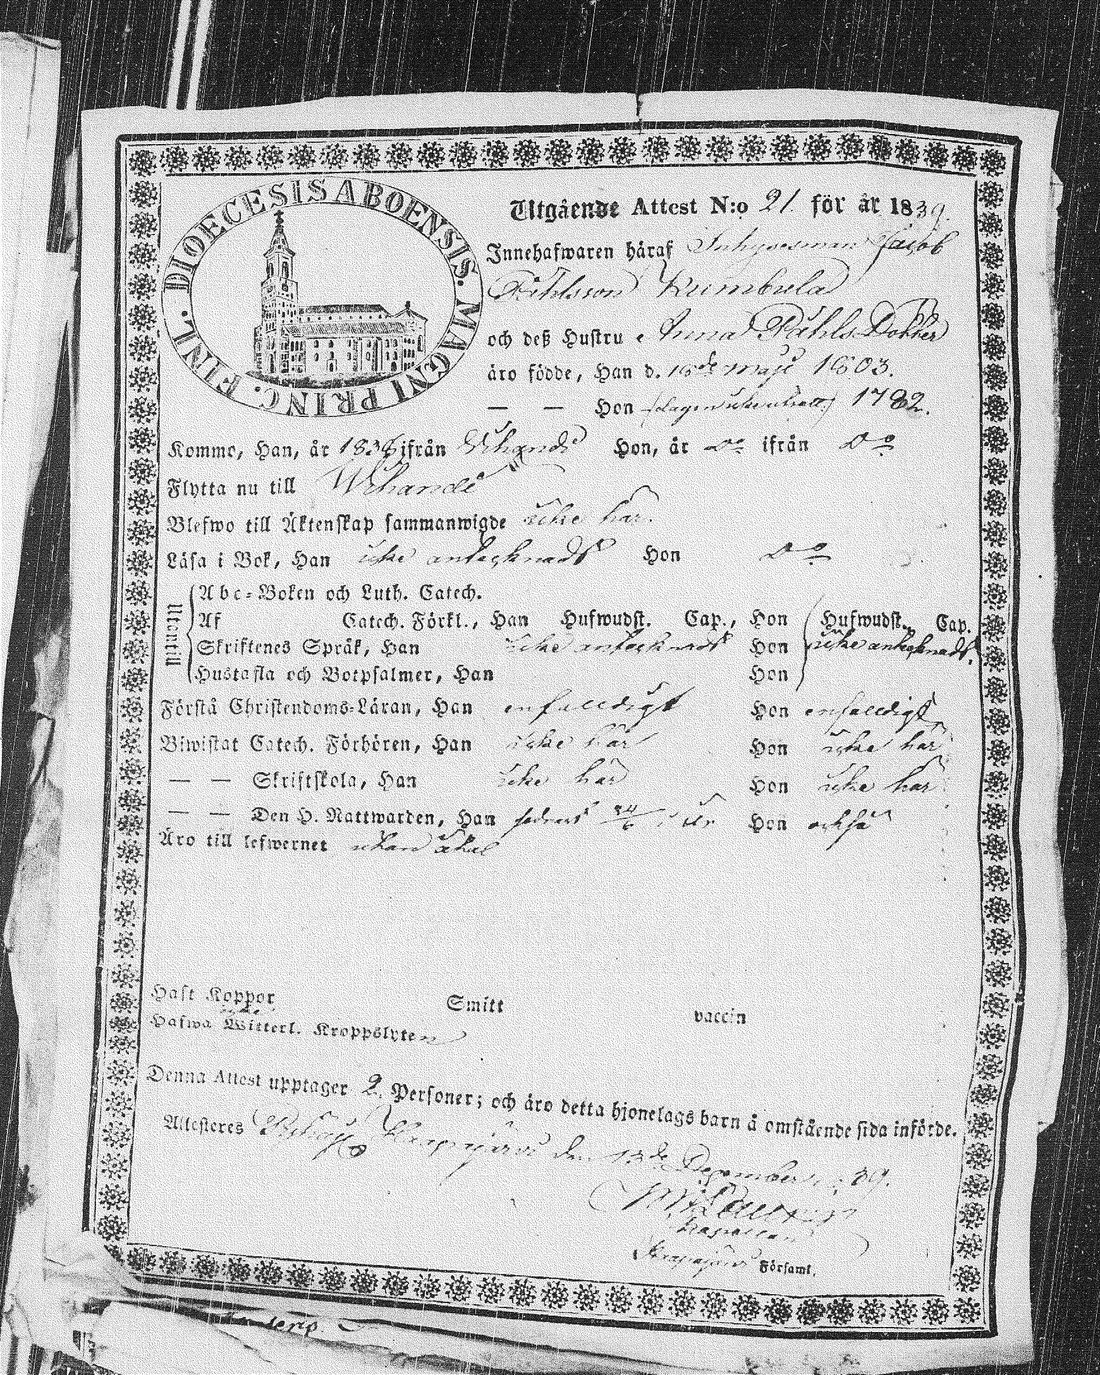 DIOECESIS ABOENSIS. MAGNI PRINC. FINL.
Utgående Attest N:o 21. för år 1839.
Innehafwaren häraf Inhysesman Jacob
Påhlsson Kumbula
och deß Hustru Anna Påhls Dotter
äro födde, Han d. 16de Maji 1803.
— — Hon 1782.
Kommo, Han, år 1838 ifrån Urhande Hon, år Do ifrån Do
Flytta nu till Urhande
Blefwo till Äktenskap sammanwigde icke här.
Läsa i Bok, Han icke antecknadt Hon Do
Utantill
Abc-Boken och Luth. Catech.
Af Catech. Förkl., Han Hufwudst. Cap., Hon Hufwudst. Cap.
Skriftenes Språk, Han icke antecknadt Hon icke antecknadt.
Hustafla och Botpsalmer, Han Hon
Förstå Christendoms-Läran, Han enfaldigt Hon enfaldigt
Biwistat Catech. Förhören, Han icke här Hon icke här
— — Skriftskola, Han icke här Hon icke här
— — Den H. Nattwarden, Han sednast 24/6 i år Hon också
Äro till lefwernet utan åtal
Haft Koppor Smitt vaccin
icke
Hafwa Witterl. Kroppslyten
Denna Attest upptager 2 Personer; och äro detta hjonelags barn å omstående sida införde.
Attesteres Kyrkoby den 13de December 39.
Kapellan
Församl.